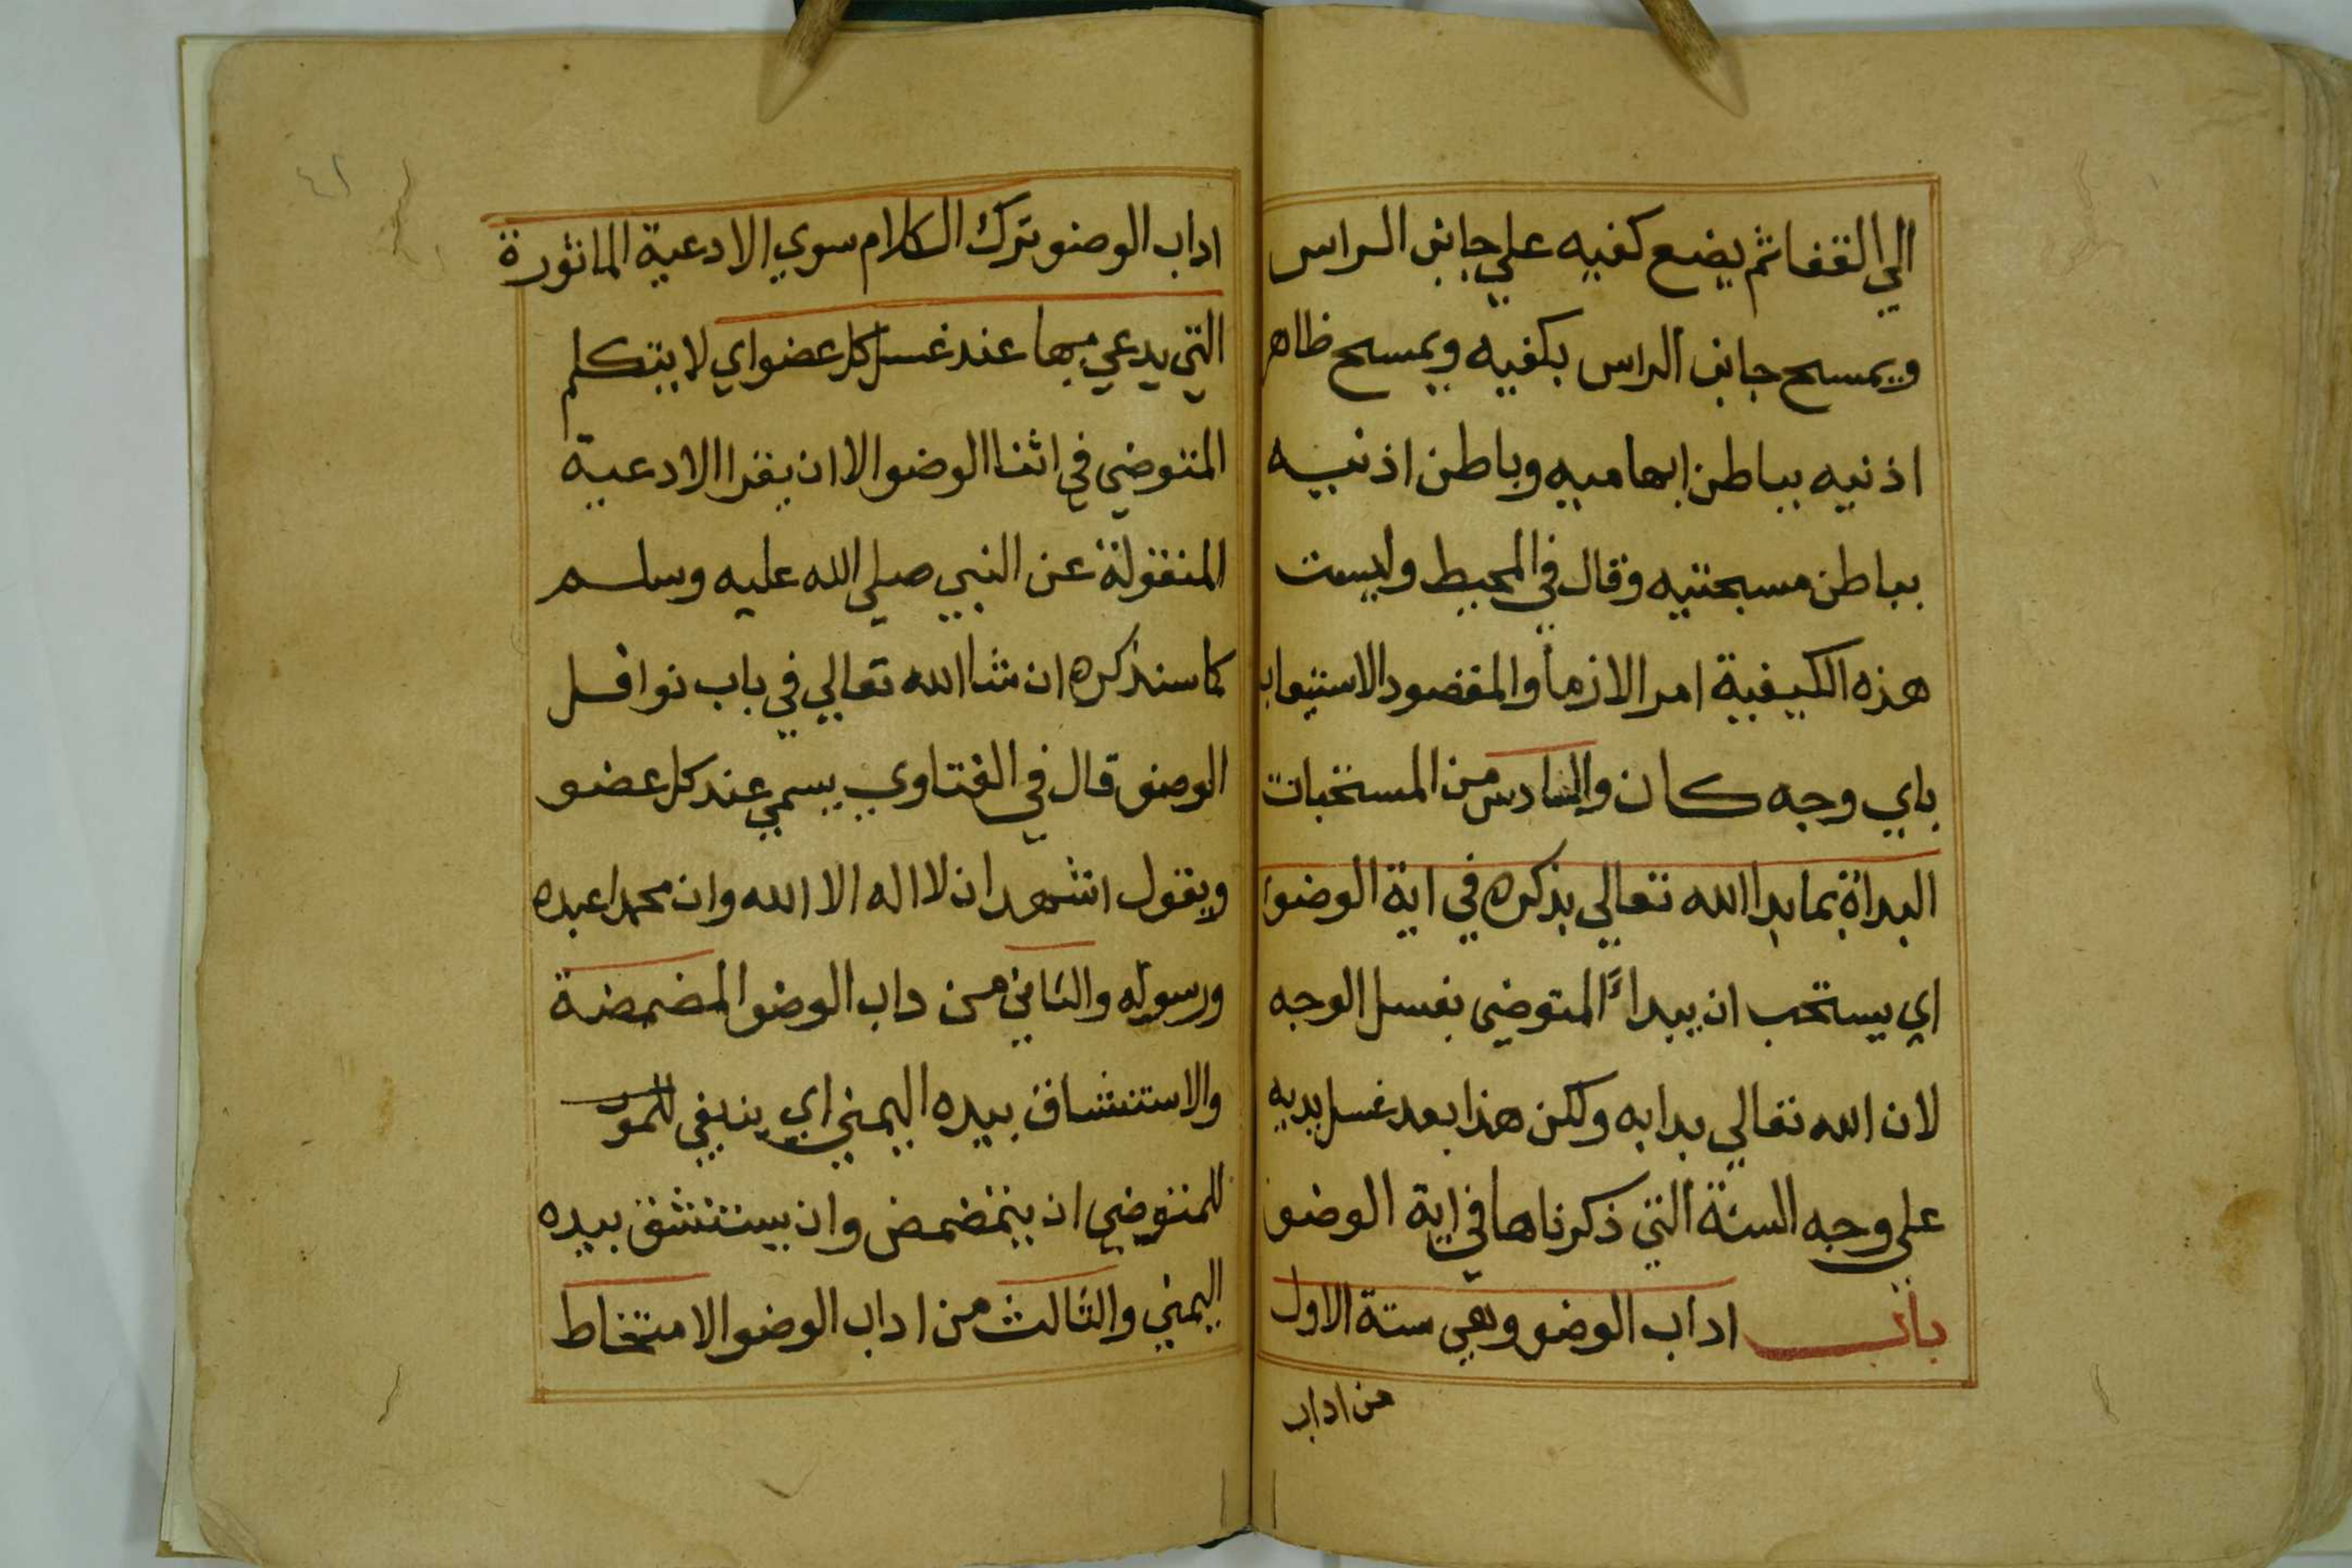 الي القفا ثم يضع كفيه علي جانبي الراس
ويمسح جانبي الراس بكفيه ويمسح ظاهر
اذنيه بباطن ابهاميه وباطن اذنيه
بباطن مسبحتيه وقال في المحيط وليست
هذه الكيفية امرا لازما والمقصود الاستيعاب
باي وجه كان والسادس من المستحبات
البداة بما بدا الله تعالي بذكره في اية الوضوء
اي يستحب ان يبدأ المتوضي بغسل الوجه
لان الله تعالي بدا به ولكن هذا بعد غسل يديه
علي وجه السنة التي ذكرناها في اية الوضو
باب اداب الوضو وهي ستة الاول
من اداب
اداب الوضو ترك الكلام سوي الادعية الماثورة
التي يدعي بها عند غسل كل عضو اي لا يتكلم
المتوضي في اثنا الوضو الا ان يقرا الادعية
المنقولة عن النبي صلي الله عليه وسلم
كما سنذكره ان شا الله تعالي في باب نوافل
الوضو قال في الفتاوي يسمي عند كل عضو
ويقول اشهد ان لا اله الا الله وان محمدا عبده
ورسوله والثاني من داب الوضو المضمضة
والاستنشاق بيده اليمني اي ينبغي للمو
للمتوضي ان يتمضمض وان يستنشق بيده
اليمني والثالث من اداب الوضو الامتخاط